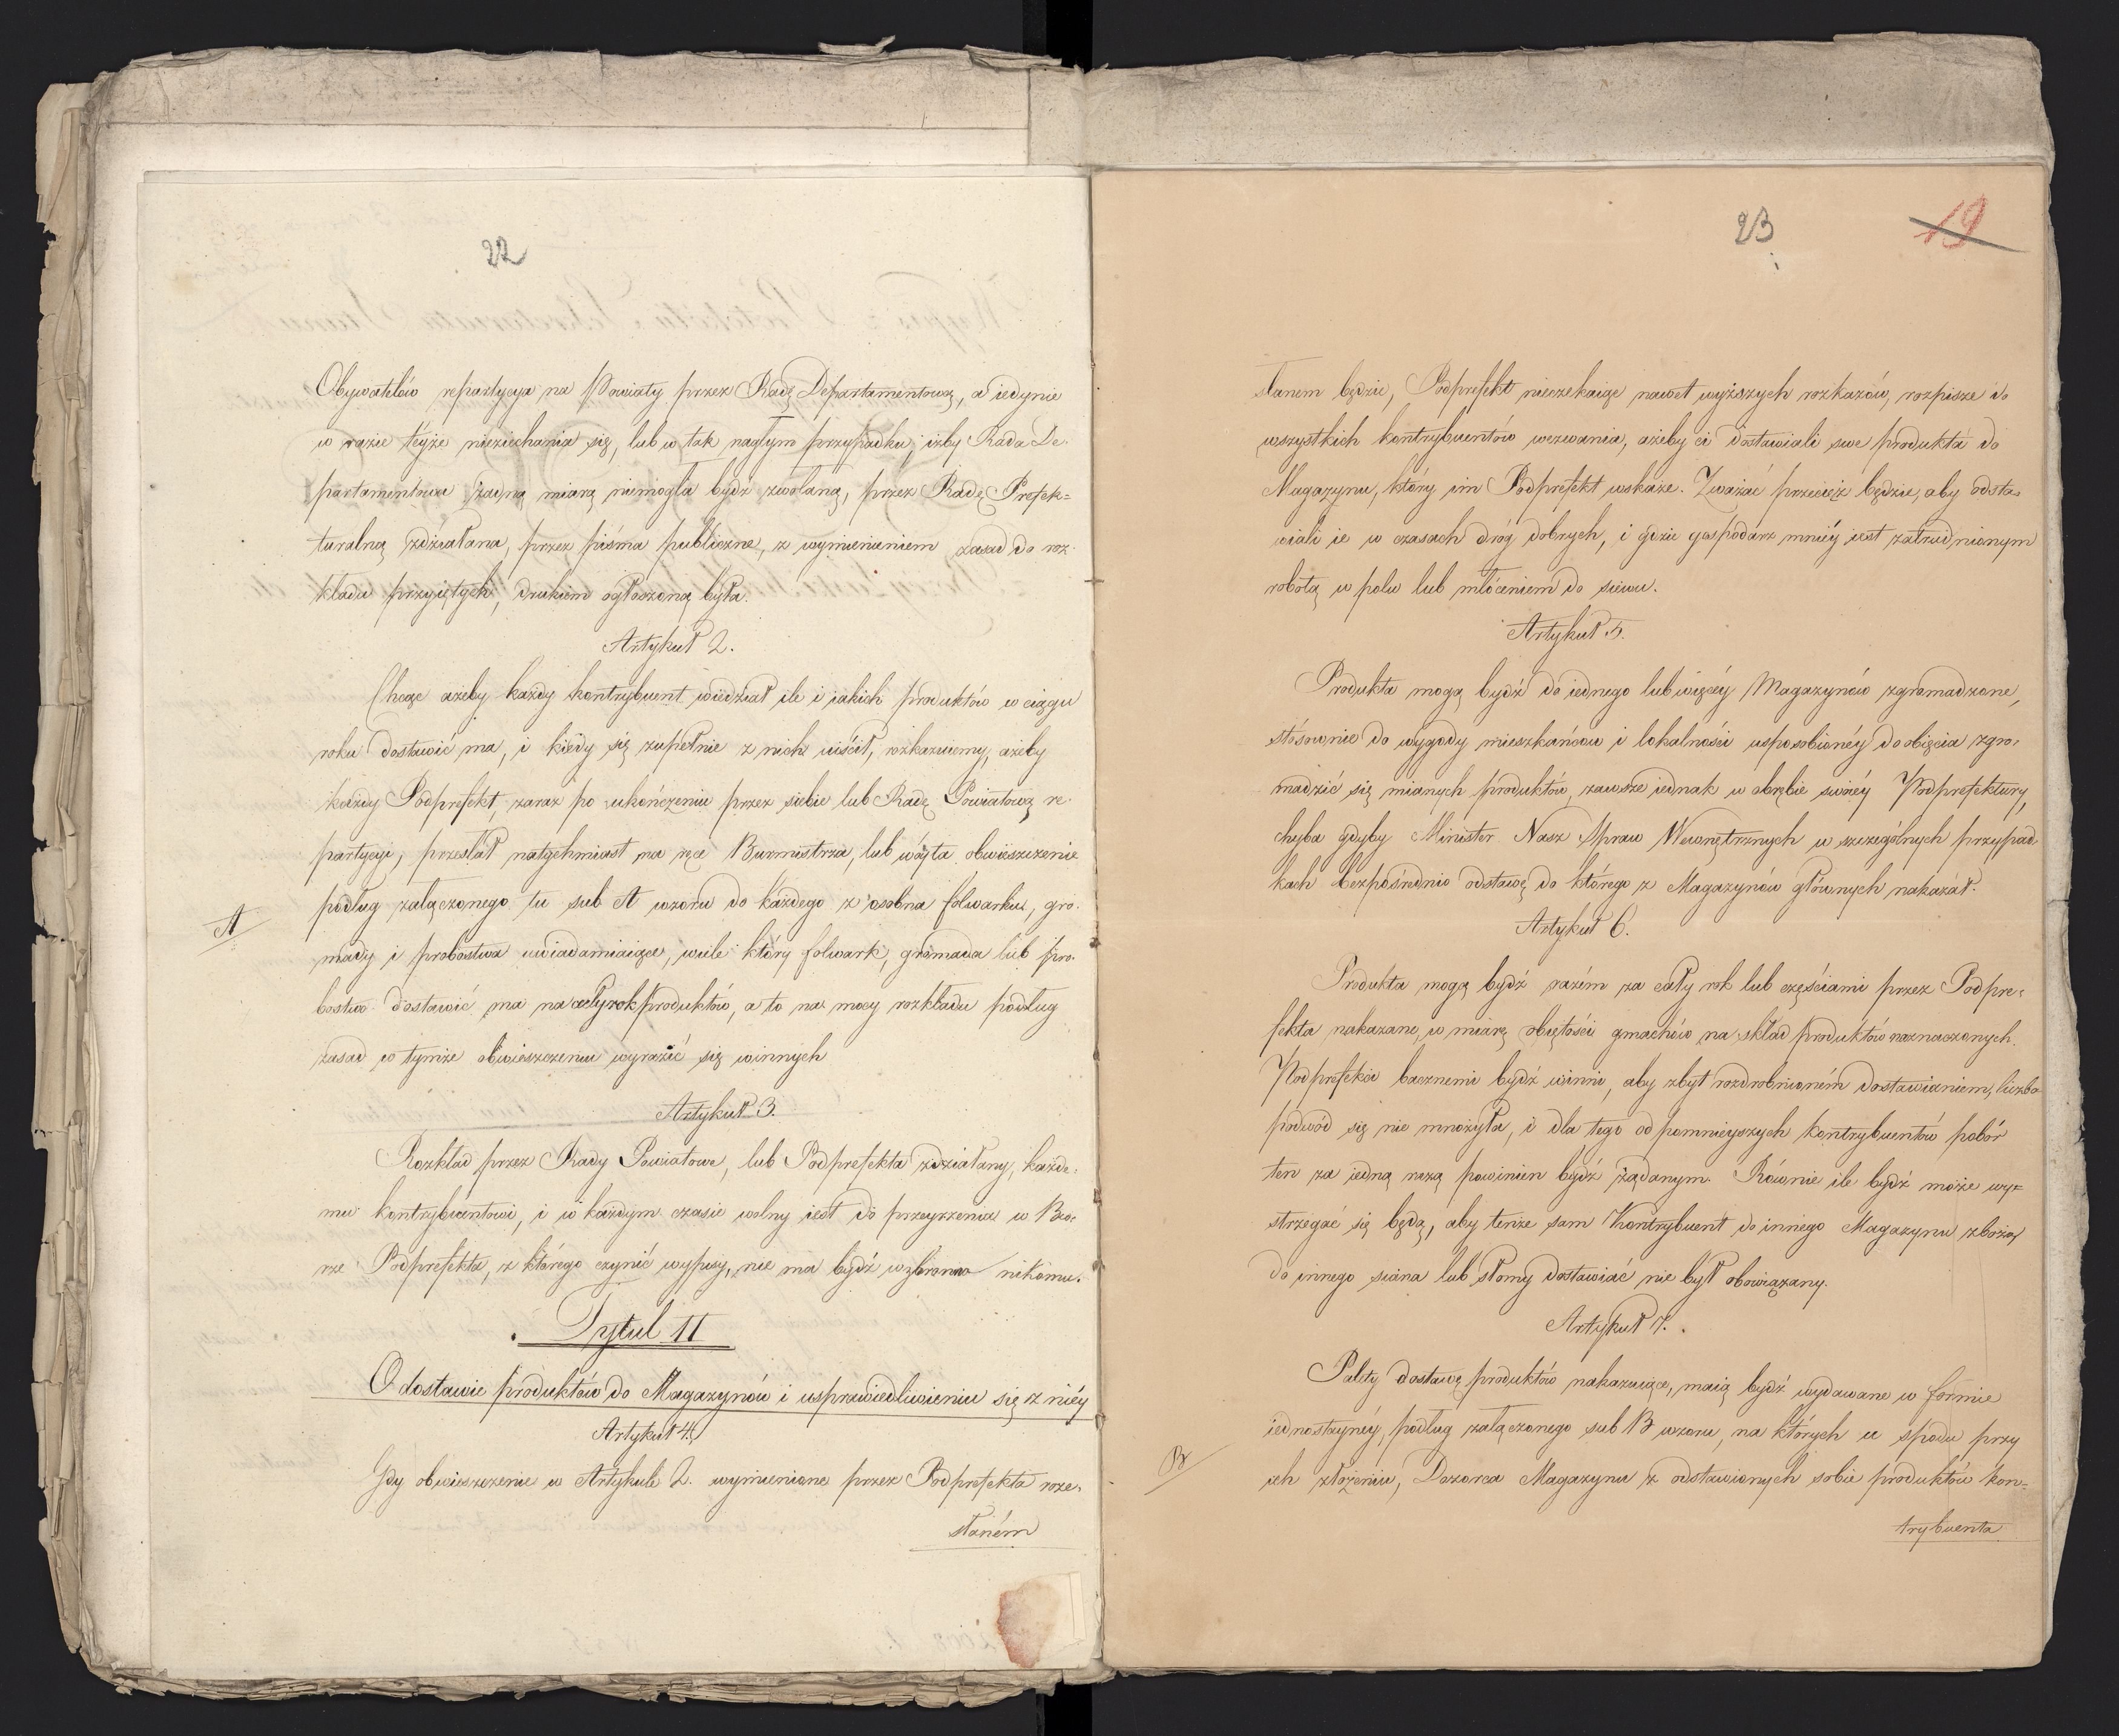 22
Obywatelów repartycya na Powiaty przez Radę Departamentową, a iedynie
w razie teyże nieziechania się, lub w tak nagłym przypadku, iżby Rada De-
partamentowa żadną miarą niemogła bydź zwołaną, przez Radę Prefek=
turalną zdziałana, przez pisma publiczne, z wymienieniem zasad do roz-
kładu przyiętych, drukiem ogłoszoną była.
Artykuł 2.
Chcąc ażeby każdy kontrybuent wiedział ile i iakich produktów w ciągu
roku dostawić ma, i kiedy się zupełnie z nich uiścił, rozkazuiemy, ażeby
każdy Podprefekt, zaraz po ukończeniu przez siebie lub Radę Powiatową re-
partycyi, przesłał natychmiast na ręce Burmistrza, lub wóyta obwieszczenie
podług załączonego tu sub A wzoru do każdego z osobna folwarku, gro-
A
mady i probostwa uwiadamiaiące, wiele który folwark, gromada lub pro-
bostwo dostawić ma na cały rok produktów, a to na mocy rozkładu podług
zasad w tymże obwieszczeniu wyrazić się winnych
Artykuł 3.
Rozkład przez Rady Powiatowe, lub Podprefekta zdziałany, każde-
mu kontrybuentowi, i w każdym czasie wolny iest do przeyrzenia w Biu-
rze Podprefekta, z którego czynić wypisy, nie ma bydź wzbronno nikomu.
Tytuł II
O dostawie produktów do Magazynów i usprawiedliwieniu się z niéy
Artykuł 4.
Gdy obwieszczenie w Artykule 2. wymienione przez Podprefekta roze-
słaném
23
19
słanem będzie, Podprefekt nieczekaiąc nawet wyższych rozkazów, rozpisze do
wszystkich kontrybuentów wezwania, ażeby ci dostawiali swe produkta do
Magazynu, który im Podprefekt wskaże. Zważać przecież będzie, aby odsta-
wiali ie w czasach dróg dobrych, i gdzie gospodarz mniéy iest zatrudnionym
robotą w polu lub młóceniem do siewu.
Artykuł 5.
Produkta mogą bydź do iednego lub więcéy Magazynów zgromadzone,
stósownie do wygody mieszkańców i lokalności usposobionéy do obięcia zgro-
madzić się mianych produktów, zawsze iednak w obrębie swoiéy Podprefektury,
chyba gdyby Minister Nasz Spraw Wewnętrznych w szczególnych przypad-
kach bezpośrednio odstawę do którego z Magazynów głównych nakazał.
Artykuł 6.
Produkta mogą bydź razém za cały rok lub częściami przez Podpre-
fekta nakazane, w miarę obiętości gmachów na skład produktów naznaczonych.
Podprefekci bacznemi bydź winni, aby zbyt rozdrobnioném dostawianiem, liczba
podwód się nie mnożyła, i dla tego od pomnieyszych kontrybuentów pobór
ten za iedną razą powinien bydź żądanym. Równie ile bydź może wy=
strzegać się będą, aby tenże sam Kontrybuent do innego Magazynu zboża,
do innego siana lub słomy dostawiać nie był obowiązany.
Artykuł 7.
Palety dostawę produktów nakazuiące, maią bydź wydawane w formie
iednostaynéy, podług załączonego sub B wzoru, na których u spodu przy
B
ich złożeniu, Dozorca Magazynu z odstawionych sobie produktów kon=
trybuenta